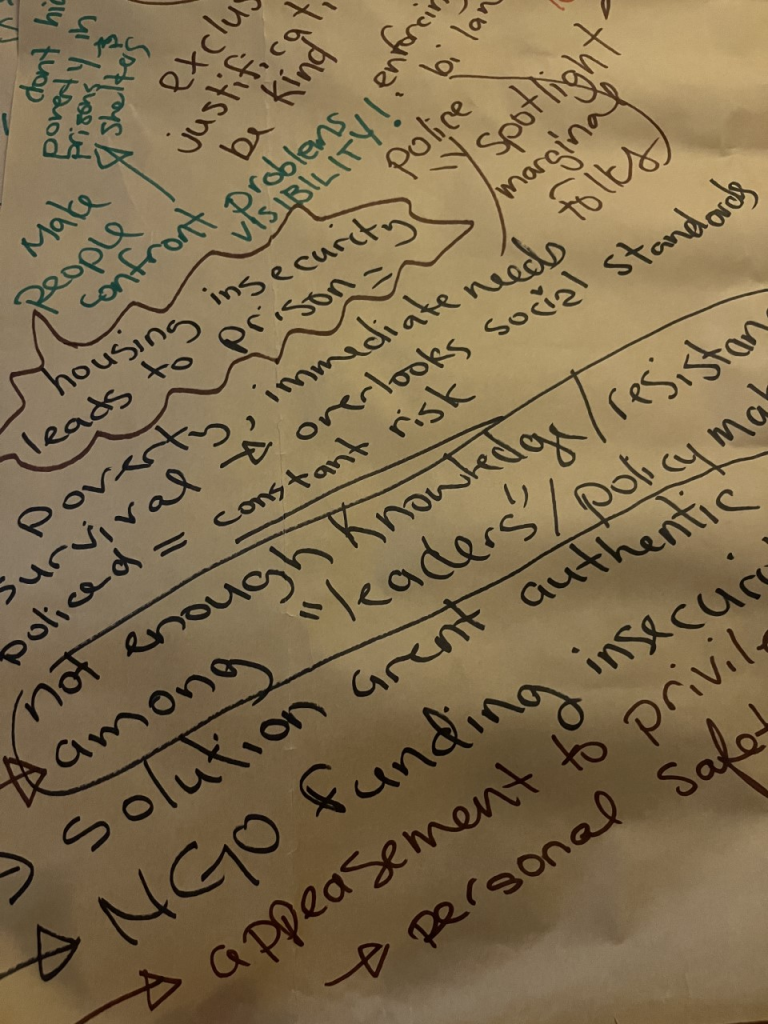 dont hi
poverty in
prisons &
shelters
Make
People
confront problems
VISIBILITY!
exclus
justificat
be kind
enforcin
Police
Spotlight
marginal
folks
housing insecurity
leads to prison =
poverty, immediate needs
survival → overlooks social standards
policed = constant risk
not enough knowledge/resistan
among "leaders"/policy mak
solution arent authentic
→ NGO funding insecuri
→ appeasement to privile
→ personal safet